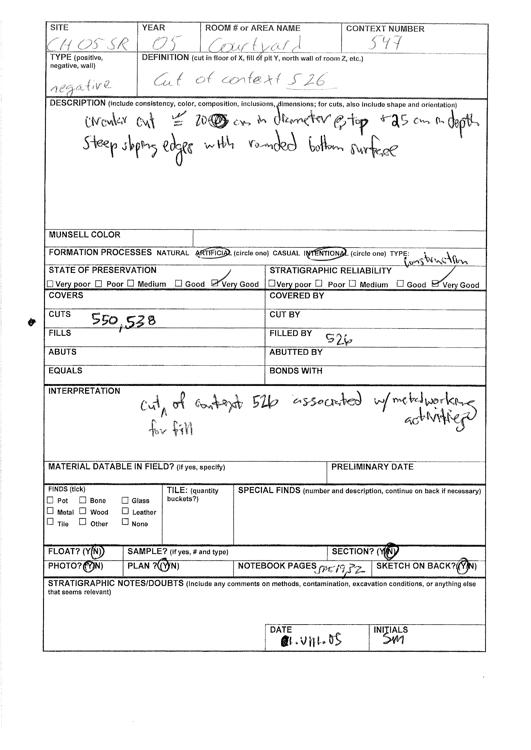 SITE YEAR ROOM # or AREA NAME CONTEXT NUMBER
CH05SR 05 Courtyard 547
TYPE (positive, negative, wall) DEFINITION (cut in floor of X, fill of pit Y, north wall of room Z, etc.)
negative Cut of context 526
DESCRIPTION (include consistency, color, composition, inclusions, dimensions; for cuts, also include shape and orientation)
circular cut 20 cm in diameter @ top 25 cm in depth
Steep sloping edges with rounded bottom surface
MUNSELL COLOR
FORMATION PROCESSES NATURAL ARTIFICIAL (circle one) CASUAL INTENTIONAL (circle one) TYPE: Construction
STATE OF PRESERVATION STRATIGRAPHIC RELIABILITY
☐ Very poor ☐ Poor ☐ Medium ☐ Good ☑ Very Good ☐ Very poor ☐ Poor ☐ Medium ☐ Good ☑ Very Good
COVERS COVERED BY
CUTS 550, 538 CUT BY
FILLS FILLED BY 526
ABUTS ABUTTED BY
EQUALS BONDS WITH
INTERPRETATION
cut of context 526 associated w/ metalworking
for fill activities
MATERIAL DATABLE IN FIELD? (if yes, specify) PRELIMINARY DATE
FINDS (tick) TILE: (quantity buckets?) SPECIAL FINDS (number and description, continue on back if necessary)
☐ Pot ☐ Bone ☐ Glass
☐ Metal ☐ Wood ☐ Leather
☐ Tile ☐ Other ☐ None
FLOAT? (Y/N) SAMPLE? (if yes, # and type) SECTION? (Y/N)
PHOTO? (Y/N) PLAN ? (Y/N) NOTEBOOK PAGES 32 SKETCH ON BACK? (Y/N)
STRATIGRAPHIC NOTES/DOUBTS (Include any comments on methods, contamination, excavation conditions, or anything else
that seems relevant)
DATE INITIALS
.VIII.05 SM